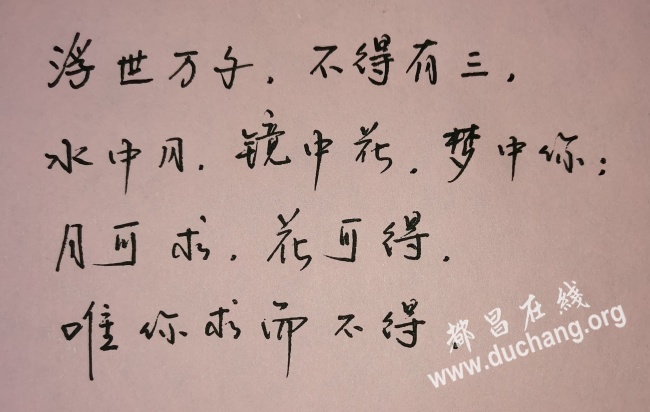 浮世万千，不得有三，
水中月，镜中花，梦中你；
月可求，花可得，
唯你求而不得。
都昌在线
www.duchang.org